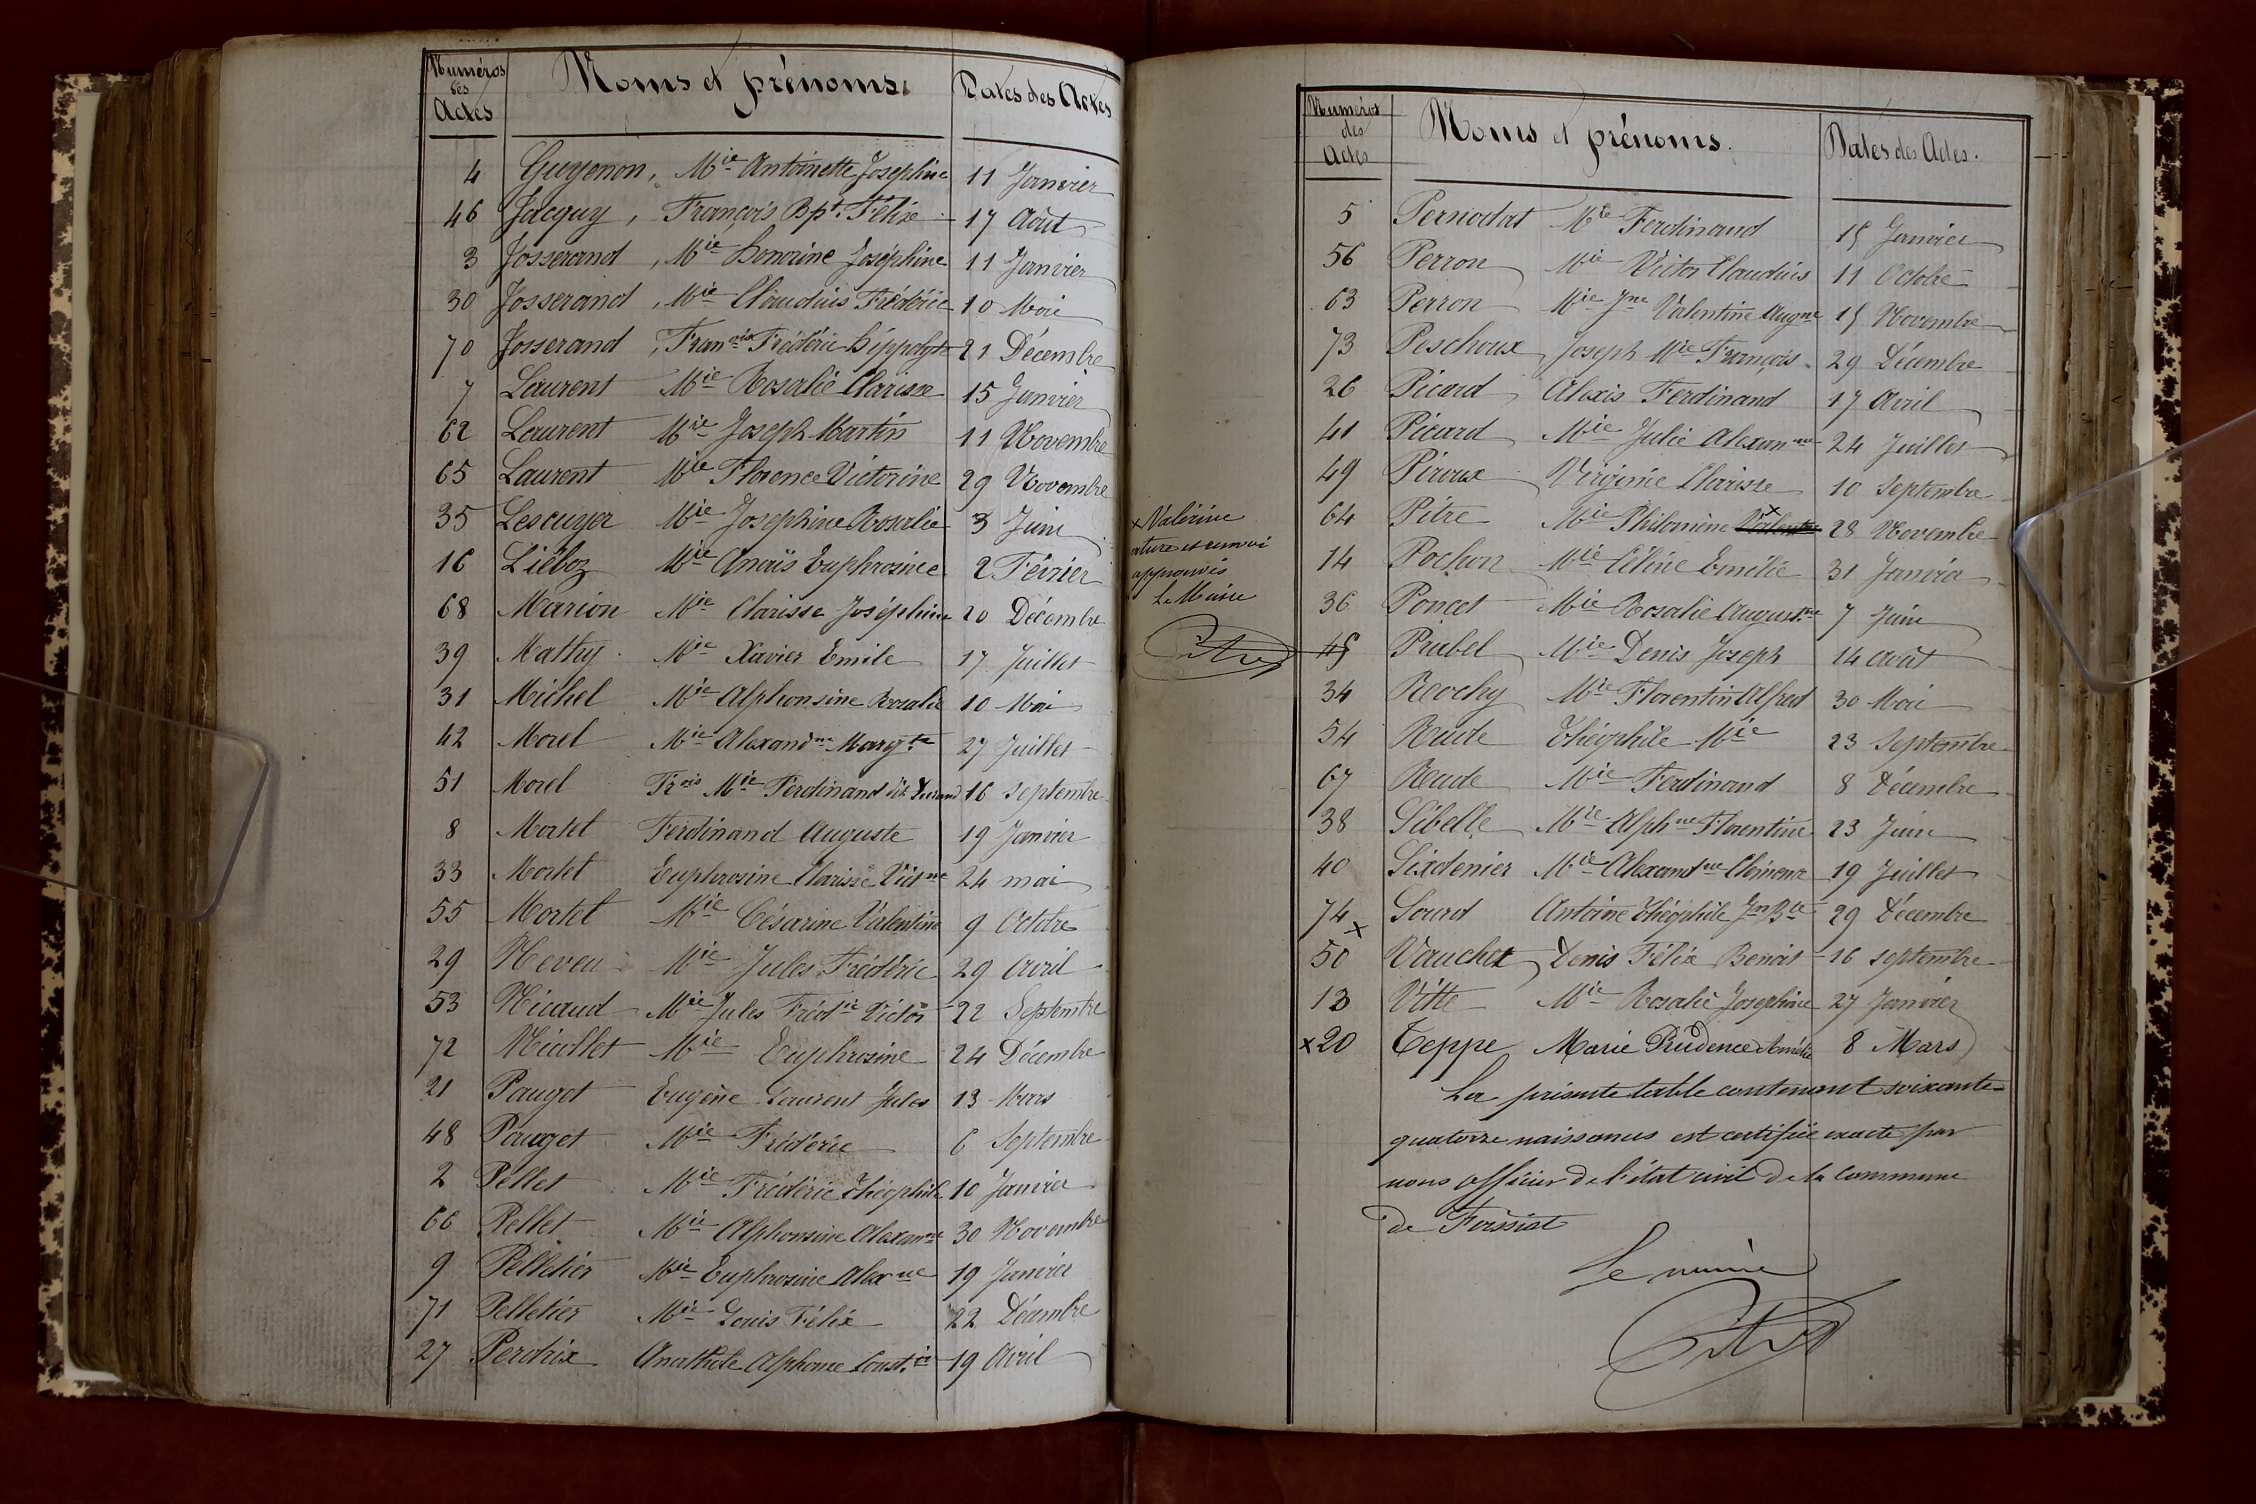 Numéros des Actes Noms et prénoms. Dates des Actes
4 Guyenon, Mie Antoinette Joséphine 11 Janvier
46 Jacquy, François Bpt. Félix 17 Août
3 Josserand, Mie Honorine Joséphine 11 Janvier
30 Josserand, Mie Claudius Frédéric 10 Mai
70 Josserand, Franois Frédéric hippolyte 21 Décembre
7 Laurent Mie Rosalie Clarisse 15 Janvier
62 Laurent Mie Joseph Martin 11 Novembre
65 Laurent Mie Florence Victorine 29 Novembre
35 Lescuyer Mie Joséphine Rosalie 3 Juin
16 Liéboz Mie Anaïs Euphrosine 2 Février
68 Marion Mie Clarisse Joséphine 20 Décembre
39 Mathy Mie Xavier Emile 17 Juillet
31 Michel Mie Alphonsine Rosalie 10 Mai
42 Morel Mie Alexandne Margte 27 Juillet
51 Morel Frois Mie Ferdinand dit 16 septembre
8 Mortet Ferdinand Auguste 19 Janvier
33 Mortet Euphrosine Clarisse Victne 24 mai
55 Mortet Mie Césarine Valentine 9 Octobre
29 Neveu Mie Jules Frédéric 29 Avril
53 Nicaud Mie Jules Frédic Victor 22 Septembre
72 Nicollet Mie Euphrosine 24 Décembre
21 Pauget Eugène Laurent Jules 13 Mars
48 Pauget Mie Frédéric 6 Septembre
2 Pellet Mie Frédéric théophile 10 Janvier
66 Pellet Mie Alphonsine Alexanne 30 Novembre
9 Pelletier Mie Euphrosine Alexne 19 Janvier
71 Pelletier Mie Louis Félix 22 Décembre
27 Perdrix Anathole Alphonse 19 Avril
x Valérine
et renvoi
approuvés
Le Maire
Pitre
Numéros des Actes Noms et prénoms. Dates des Actes.
5 Pernodat Mie Ferdinand 15 Janvier
56 Perron Mie Victor Claudius 11 Octobre
63 Perron Mie Jne Valentine Augne 15 Novembre
73 Peschoux Joseph Mie François 29 Décembre
26 Picard Alexis Ferdinand 17 Avril
41 Picard Mie Julie Alexanne 24 Juillet
49 Piroux Virginie Clarisse 10 Septembre
64 Pitre Mie Philomène x 28 Novembre
14 Pochon Mie Céline Emélie 31 Janvier
36 Poncet Mie Rosalie Augustne 7 Juin
45 Prabel Mie Denis Joseph 14 Août
34 Reochy Mie Florentin Alfred 30 Mai
54 Rude Théophile Mie 23 Septembre
67 Rude Mie Ferdinand 8 Décembre
38 Sibelle Mie Alphne Florentine 23 Juin
40 Sixdenier Mie Alexandne Clémence 19 Juillet
74 x Sourd Antoine théophile Jn Bte 29 Décembre
50 Vauchet Denis Félix Benoit 16 septembre
13 Vitte Mie Rosalie Joséphine 27 Janvier
x20 Teppe Marie Prudence Amélie 8 Mars
La présente table contenant soixante
quatorze naissances est certifiée exacte par
nous officier de l'état civil de la commune
de Foissiat
Le maire
Pitre